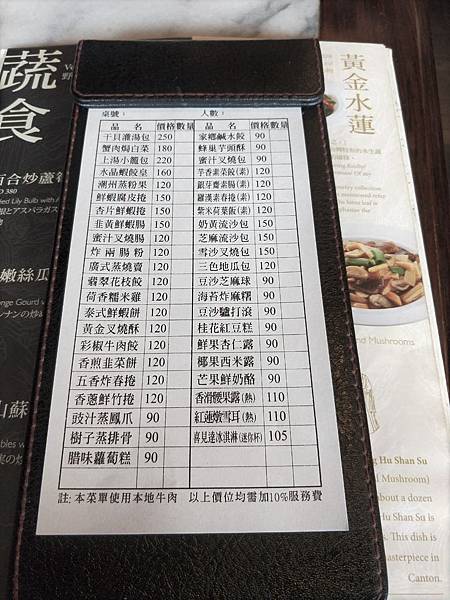 蔬
食
黃金水蓮
桌號： 人數：
品 名 價格 數量 品 名 價格 數量
干貝灌湯包 250 家鄉鹹水餃 90
蟹肉焗白菜 180 蜂巢芋頭酥 90
上湯小籠包 220 蜜汁叉燒包 90
水晶蝦餃皇 160 芋香素菜餃(素) 120
潮州蒸粉果 120 銀芽齋素腸(素) 120
鮮蝦腐皮捲 150 羅漢素春捲(素) 120
杏片鮮蝦捲 150 紫米荷葉飯(素) 120
韭黃鮮蝦腸 150 奶黃流沙包 150
蜜汁叉燒腸 120 芝麻流沙包 150
炸兩腸粉 120 雪沙叉燒包 150
廣式蒸燒賣 120 三色地瓜包 120
翡翠花枝餃 120 豆沙芝麻球 90
荷香糯米雞 120 海苔炸麻糬 90
泰式鮮蝦餅 120 豆沙驢打滾 90
黃金叉燒酥 120 桂花紅豆糕 90
彩椒牛肉餃 120 鮮果杏仁露 90
香煎韭菜餅 120 椰果西米露 90
五香炸春捲 120 芒果鮮奶酪 90
香蔥鮮竹捲 120 香滑腰果露(熱) 110
豉汁蒸鳳爪 90 紅蓮燉雪耳(熱) 110
樹子蒸排骨 90 喜見達冰淇淋(迷你杯) 105
腊味蘿蔔糕 90
註: 本菜單使用本地牛肉 以上價位均需加10%服務費
百合炒蘆筍
嫩絲瓜
山蘇
nd Mushrooms
g Hu Shan Su
Mushroom)
about a dozen
Hu Shan Su is
s. This dish is
asterpiece in
Canton.